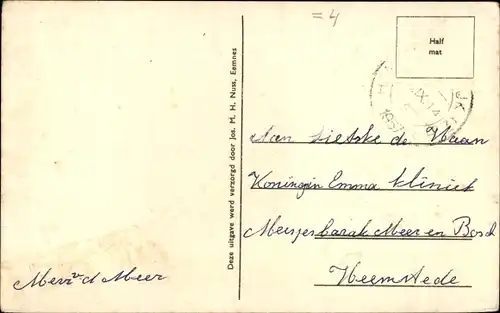 =4
Half
mat
Deze uitgave werd verzorgd door Jos. M. H. Nuss, Eemnes
Aan Sietske de Haan
Koningin Emma kliniek
Meijerbarak Meer en Bosch
Heemstede
v d Meer